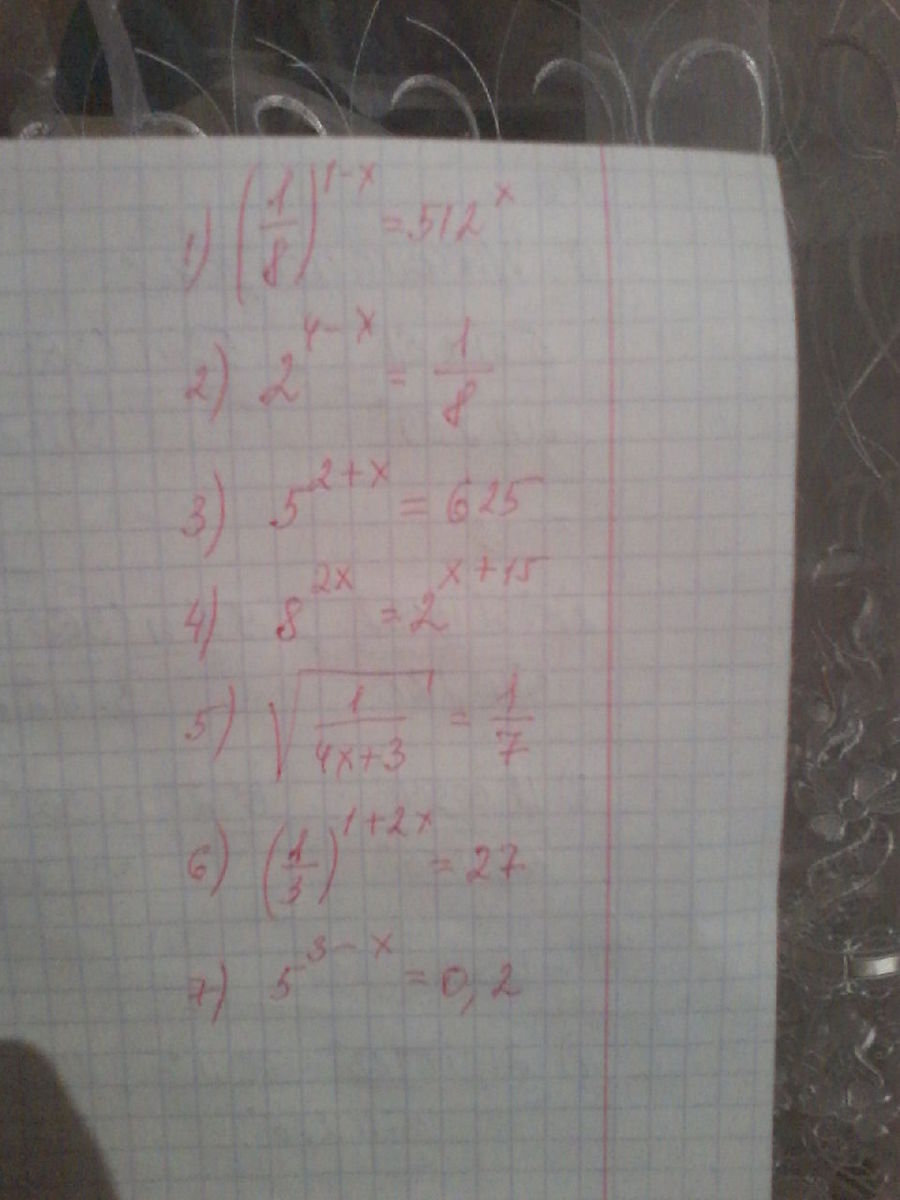 1) (1/8)^(1-x) = 512^x
2) 2^(4-x) = 1/8
3) 5^(2+x) = 625
4) 8^(2x) = 2^(x+15)
5) √(1/(4x+3)) = 1/7
6) (1/3)^(1+2x) = 27
7) 5^(3-x) = 0,2